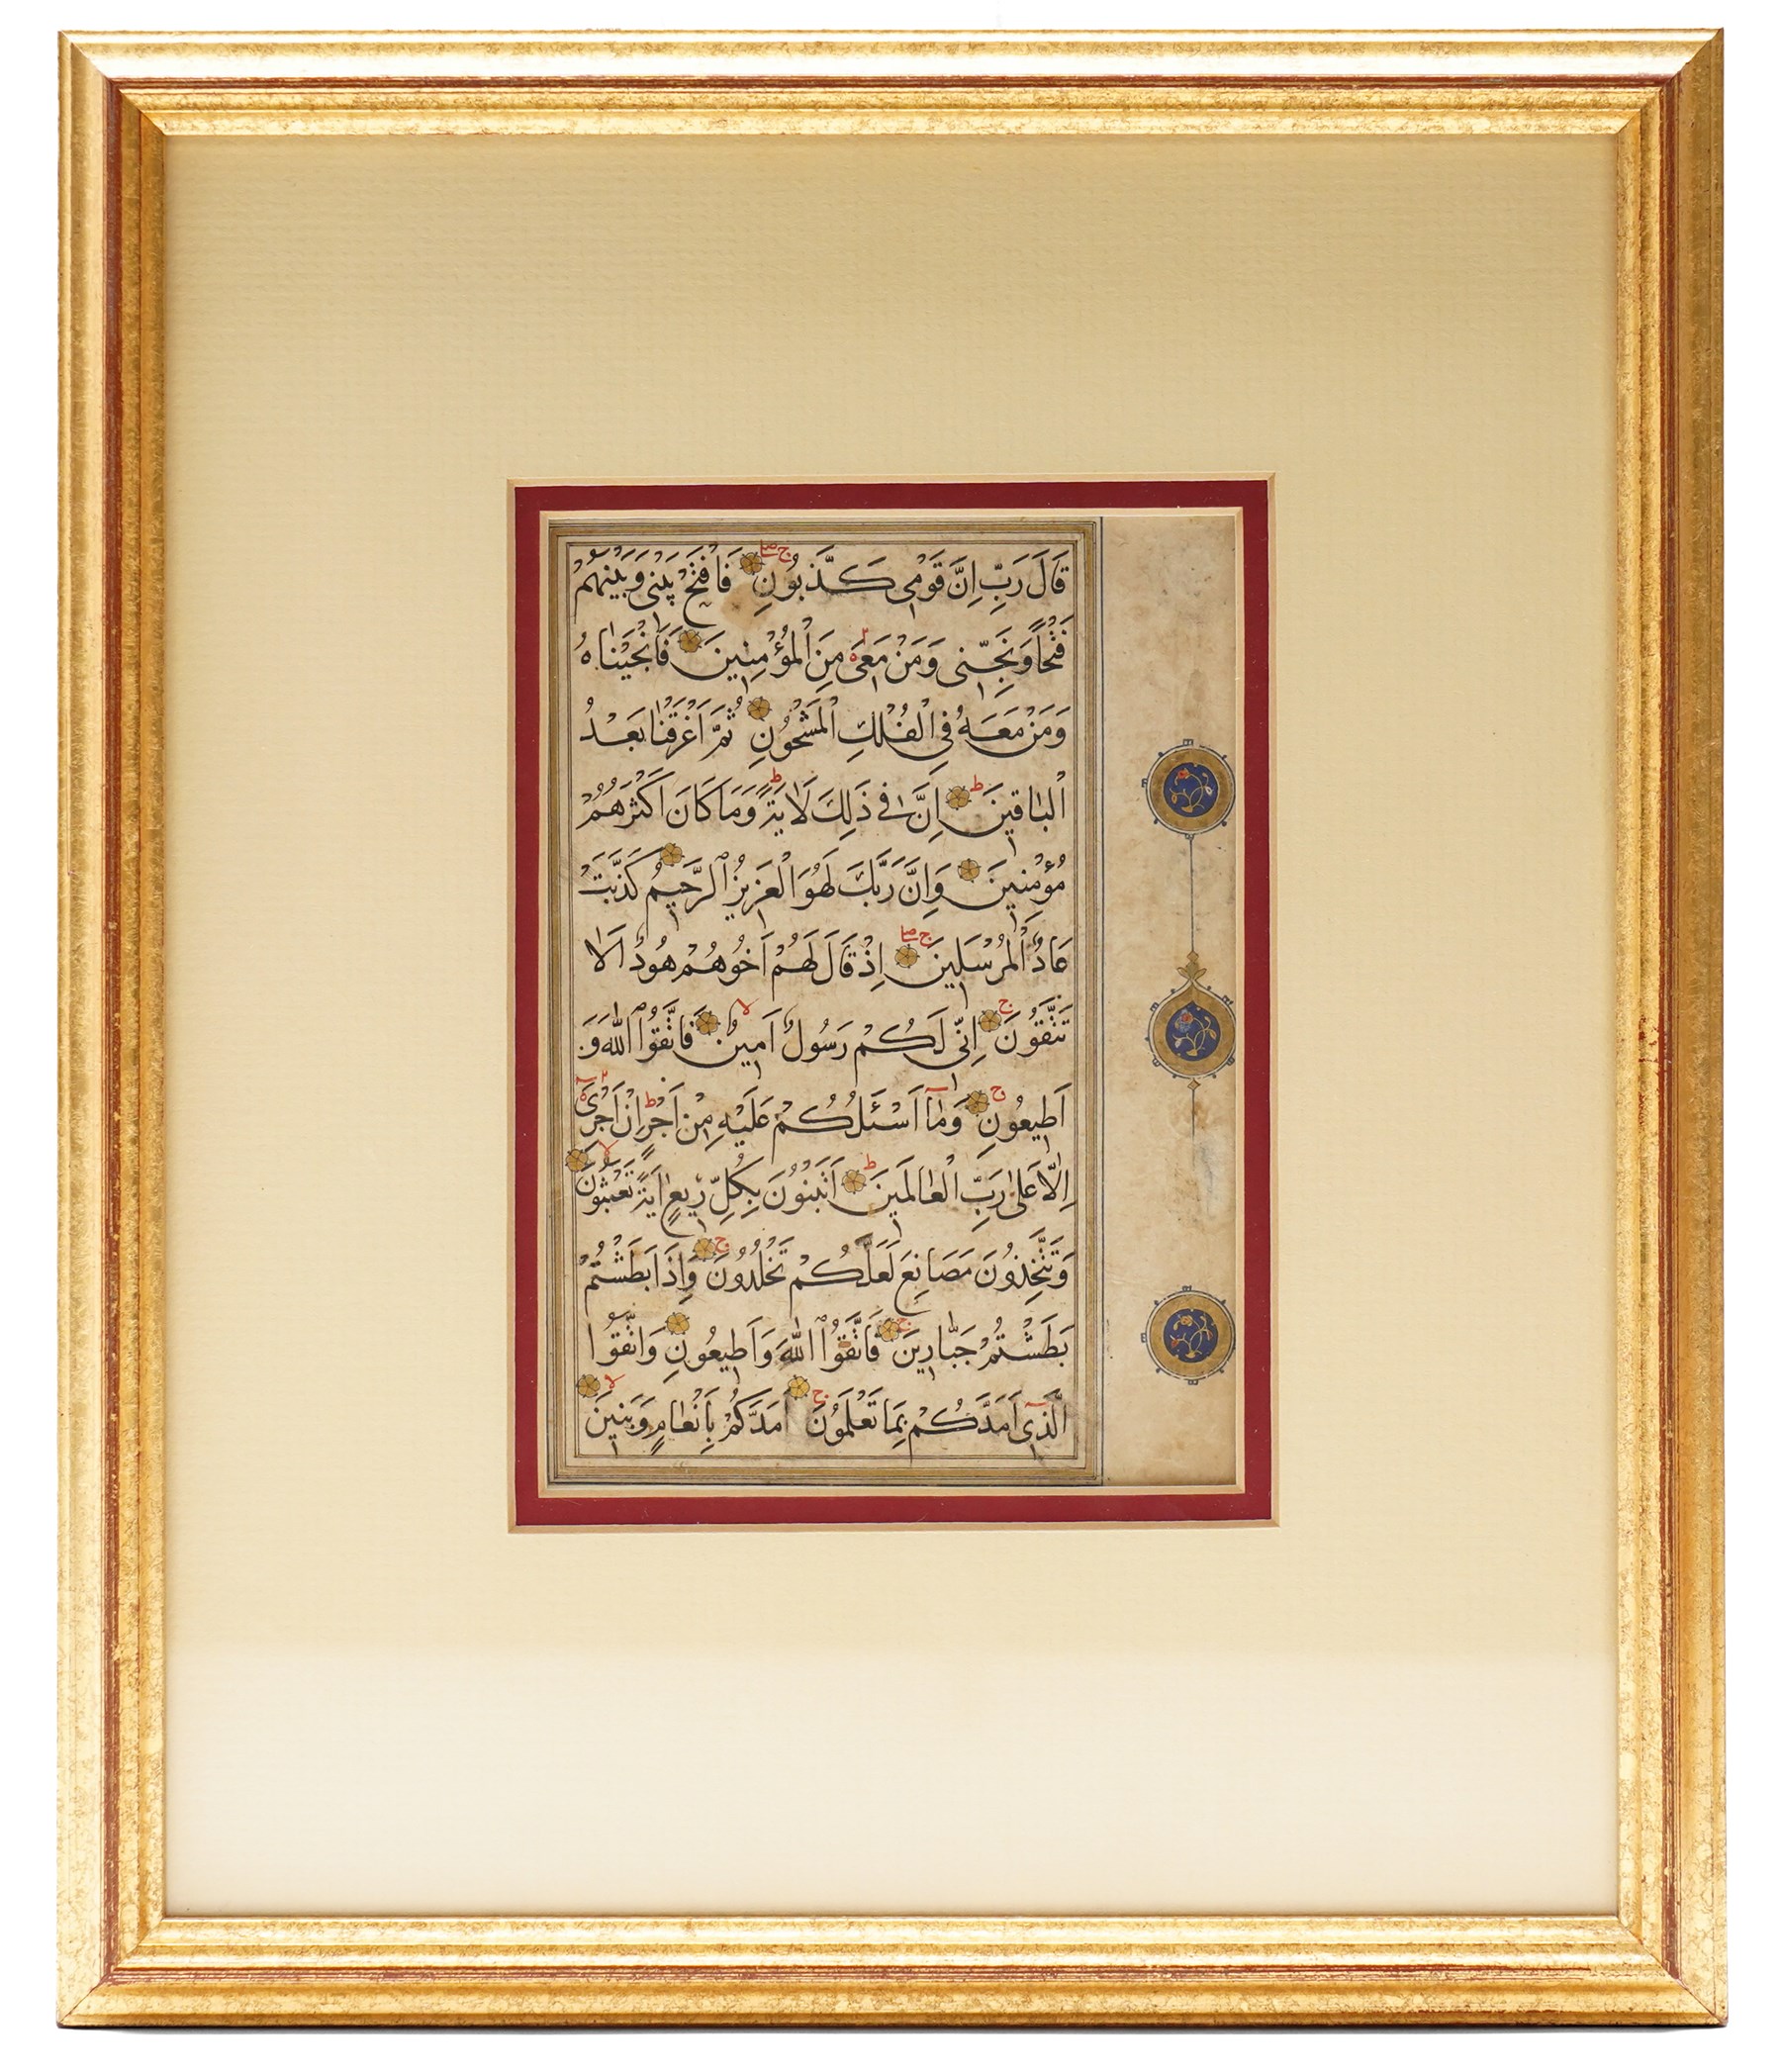 قَالَ رَبِّ اِنَّ قَوْمٖى كَذَّبُونِ فَافْتَحْ بَيْنٖى وَبَيْنَهُمْ
فَتْحًا وَنَجِّنٖى وَمَنْ مَعِىَ مِنَ الْمُؤْمِنٖينَ فَاَنْجَيْنَاهُ
وَمَنْ مَعَهُ فِى الْفُلْكِ الْمَشْحُونِ ثُمَّ اَغْرَقْنَا بَعْدُ
الْبَاقٖينَ اِنَّ فٖى ذٰلِكَ لَاٰيَةً وَمَا كَانَ اَكْثَرُهُمْ
مُؤْمِنٖينَ وَاِنَّ رَبَّكَ لَهُوَ الْعَزٖيزُ الرَّحٖيمُ كَذَّبَتْ
عَادٌ الْمُرْسَلٖينَ اِذْ قَالَ لَهُمْ اَخُوهُمْ هُودٌ اَلَا
تَتَّقُونَ اِنّٖى لَكُمْ رَسُولٌ اَمٖينٌ فَاتَّقُوا اللّٰهَ وَ
اَطٖيعُونِ وَمَا اَسْئَلُكُمْ عَلَيْهِ مِنْ اَجْرٍ اِنْ اَجْرِىَ
اِلَّا عَلٰى رَبِّ الْعَالَمٖينَ اَتَبْنُونَ بِكُلِّ رٖيعٍ اٰيَةً تَعْبَثُونَ
وَتَتَّخِذُونَ مَصَانِعَ لَعَلَّكُمْ تَخْلُدُونَ وَاِذَا بَطَشْتُمْ
بَطَشْتُمْ جَبَّارٖينَ فَاتَّقُوا اللّٰهَ وَاَطٖيعُونِ وَاتَّقُوا
الَّذٖى اَمَدَّكُمْ بِمَا تَعْلَمُونَ اَمَدَّكُمْ بِاَنْعَامٍ وَبَنٖينَ